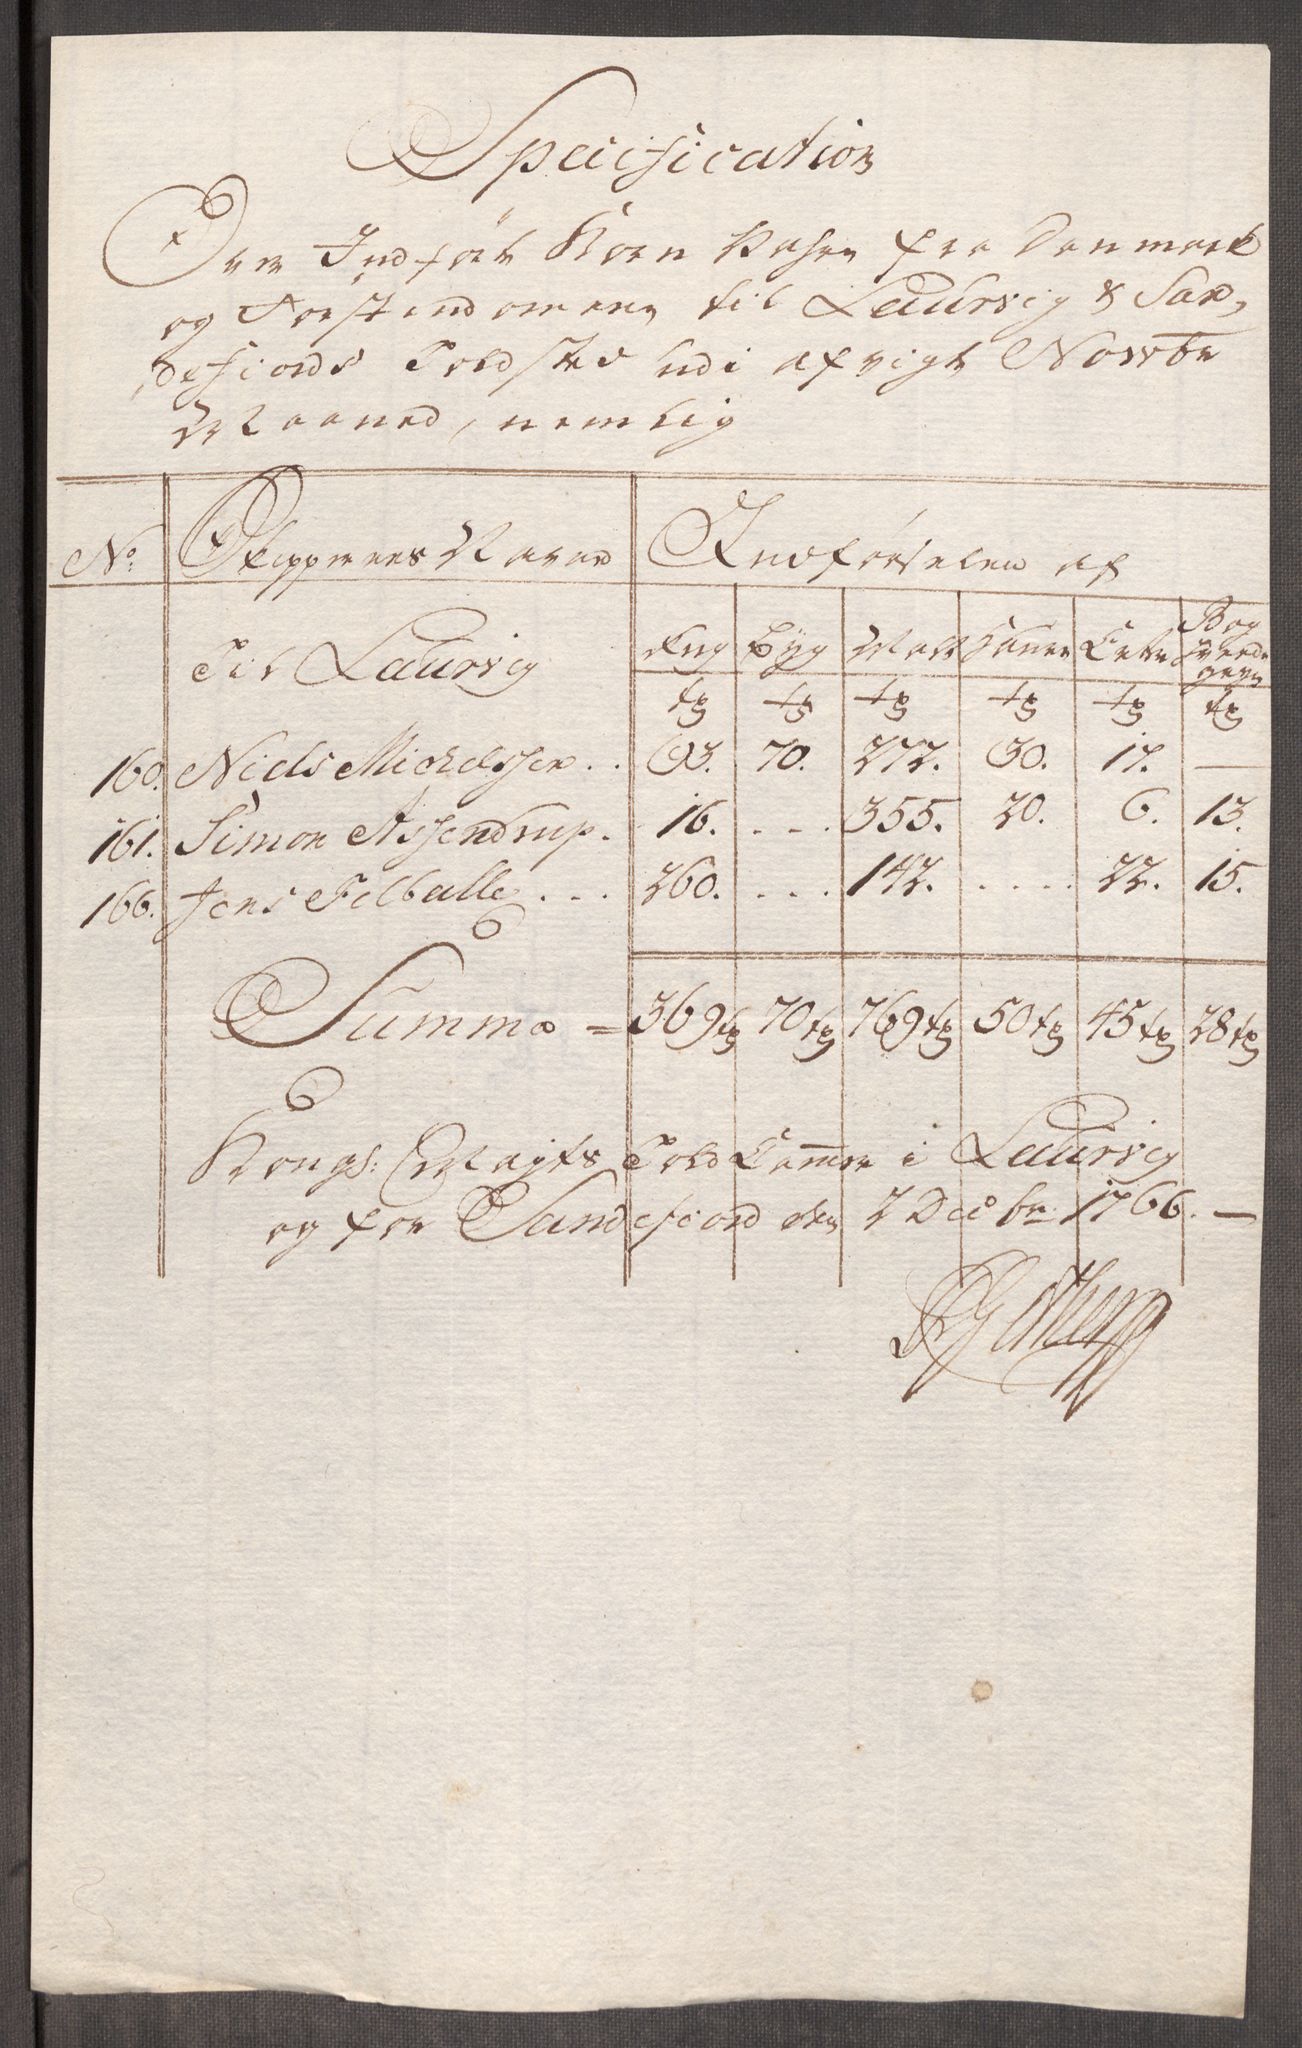 Specification
Over Indført Korn Vahre fra Danmark
og Førstendommene til Laurvig & San,,
defiords Toldsted udi afvigte Novbr
Maaned, nemlig
No: Skippernes Navne Indførselen af
Til Laurvig Rug Byg Malt Havre Erter Bog hvede gryn
tr tr tr tr tr tr
160. Niels Michelssen . . 93. 70. 272. 30. 17. —
161. Simon Assendrup . 16. . . . 355. 20. 6. 13.
166. Jens Felballe . . . 260. . . . 142. . . . . 22. 15.
Summa = 369 tr 70 tr 769 tr 50 tr 45 tr 28 tr
Kongs: Mayts Told Cammer i Laurvig
og for Sandefiord den 2 Decbr: 1766. —